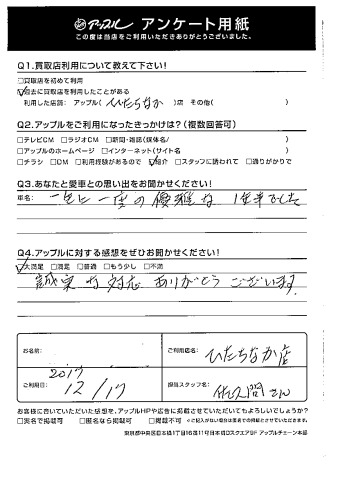 アップル アンケート用紙
この度は当店をご利用いただきありがとうございました。
Q1.買取店利用について教えて下さい!
□買取店を初めて利用
☑過去に買取店を利用したことがある
利用した店舗: アップル( ひたちなか )店 その他( )
Q2.アップルをご利用になったきっかけは?(複数回答可)
□テレビCM □ラジオCM □新聞・雑誌(媒体名/ )
□アップルのホームページ □インターネット(サイト名 )
□チラシ □DM □利用経験があるので ☑紹介 □スタッフに誘われて □通りがかりで
Q3.あなたと愛車との思い出をお聞かせください!
車名:
一生に一度の 優雅な 1年半でした
Q4.アップルに対する感想をぜひお聞かせください!
☑大満足 □満足 □普通 □もう少し □不満
誠実な対応 ありがとう ございます
お名前: ご利用店名: ひたちなか店
ご利用日: 2017 12/17 担当スタッフ名: 佐久間さん
お客様に書いていただいた感想を、アップルHPや広告に掲載させていただいてもよろしいでしょうか?
□実名で掲載可 □匿名なら掲載可 □掲載不可 <ご記入がない場合は匿名での掲載とさせていただきます。
東京都中央区日本橋1丁目16番11号日本橋Dスクエア5F アップルチェーン本部